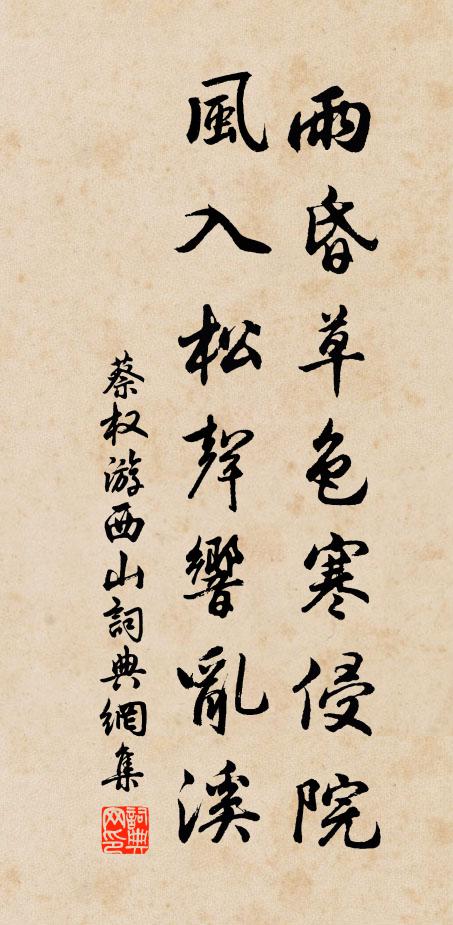 雨昏草色寒侵院
風入松聲響亂溪
蔡权游西山詞典網集
詞典网印